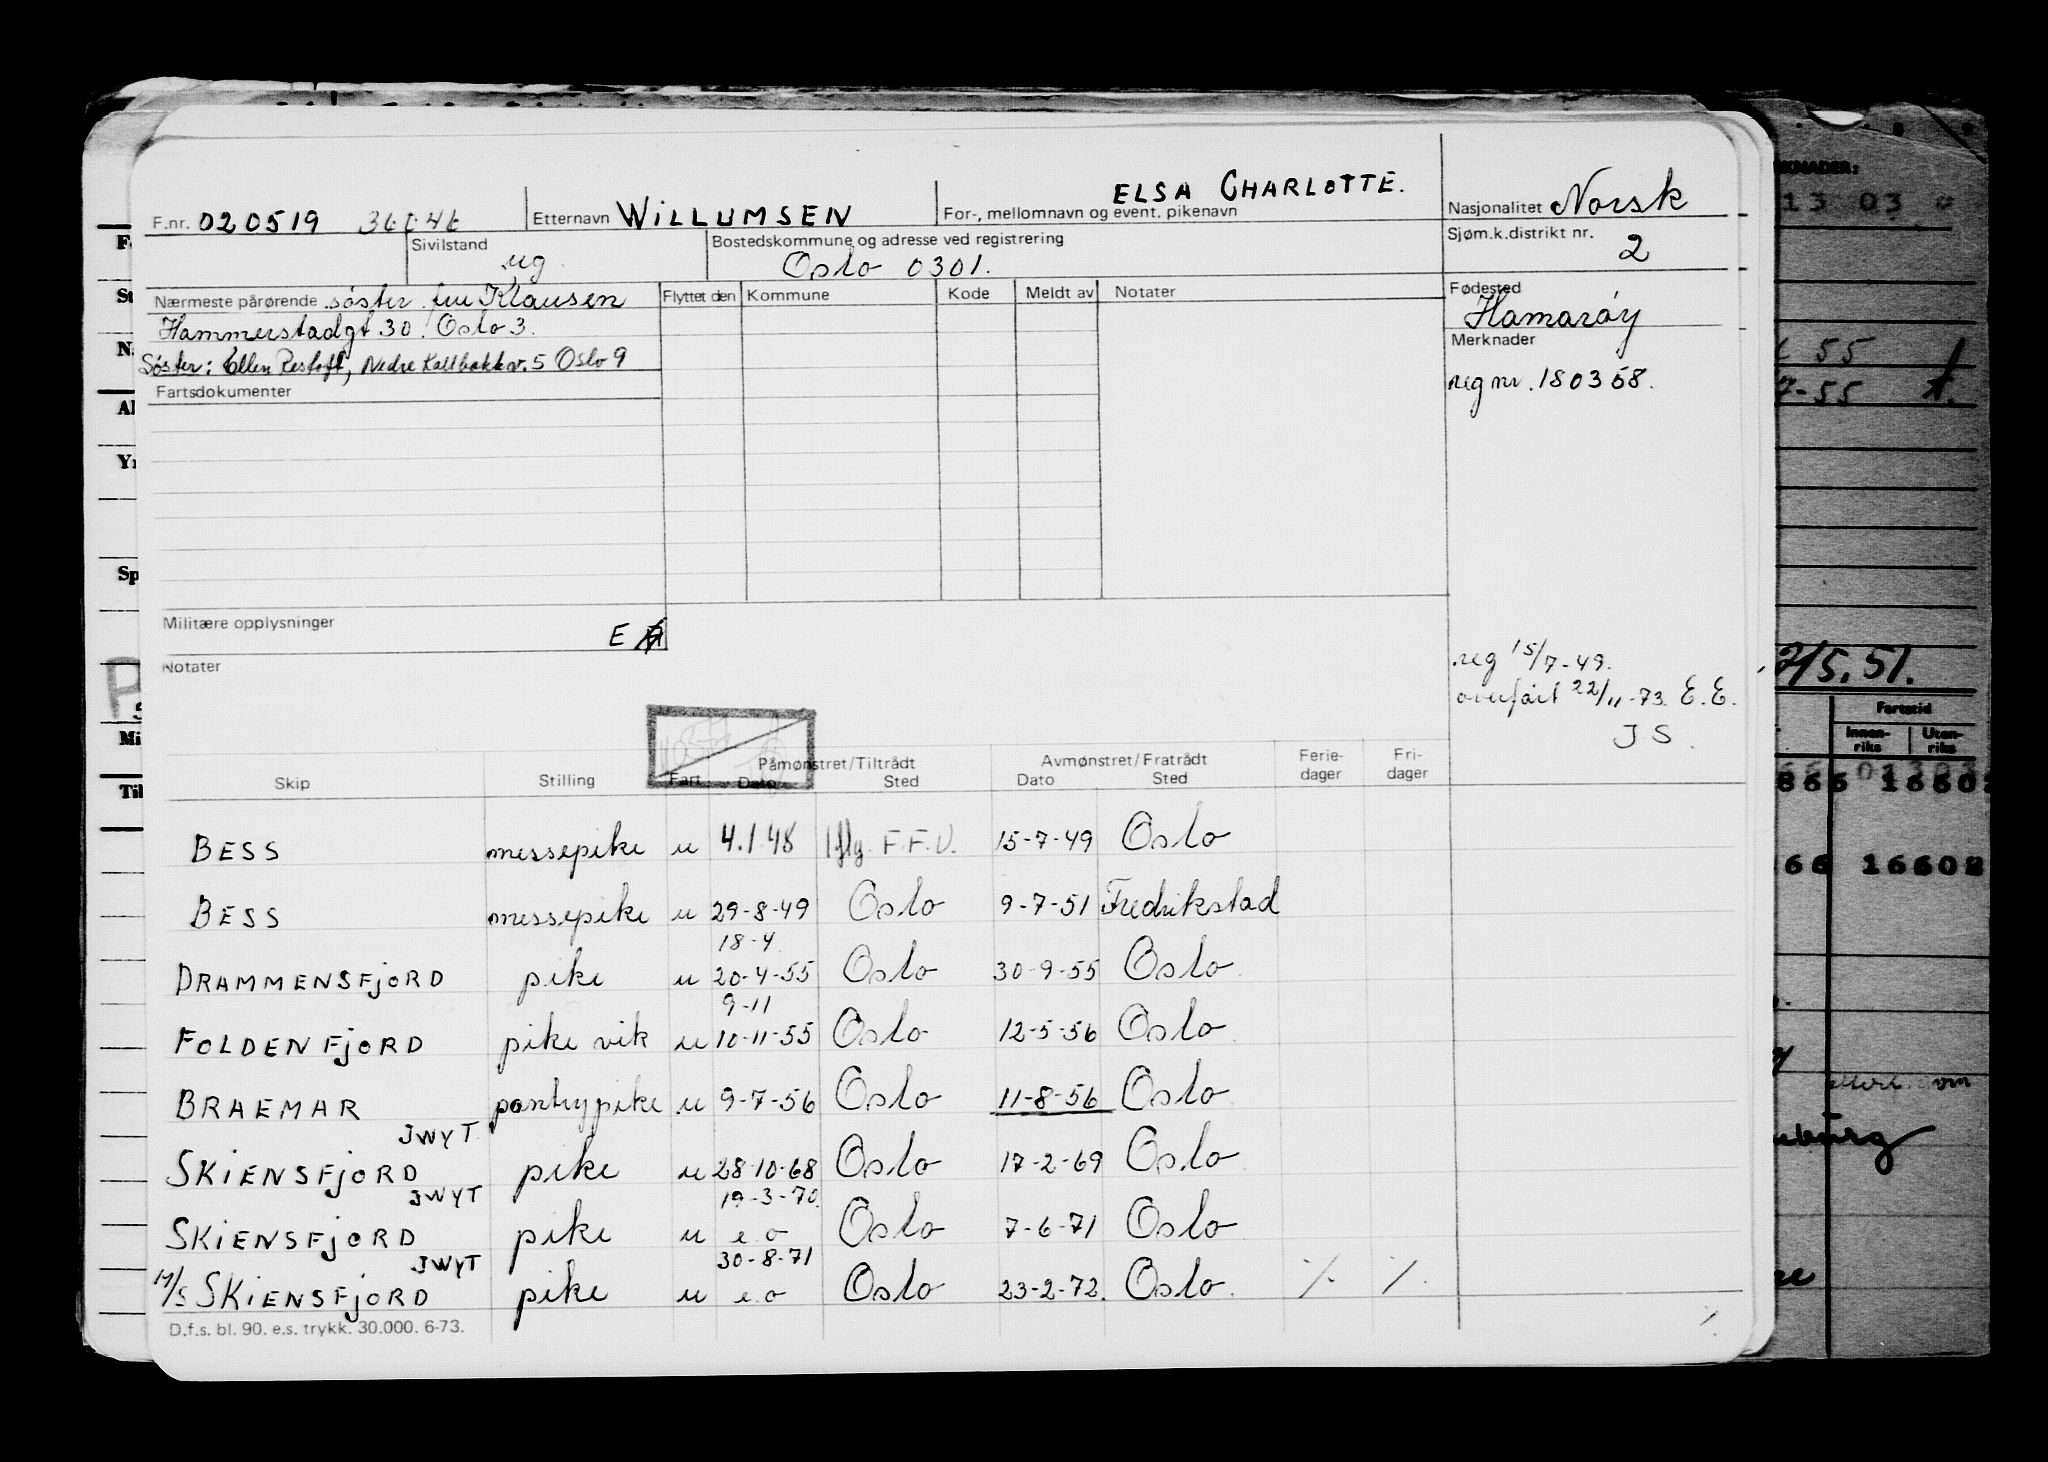 F.nr. 020519 Etternavn WILLUMSEN For-, mellomnavn og event. pikenavn ELSA CHARLOTTE. Nasjonalitet Norsk
Sivilstand ug Bostedskommune og adresse ved registrering Oslo 0301. Sjøm.k.distrikt nr. 2
Nærmeste pårørende søster fru Klausen Flyttet den Kommune Kode Meldt av Notater Fødested
Hammerstadgt 30. Oslo 3. Hamarøy
Søster: Ellen Restoft, Nedre Kalbakkv. 5 Oslo 9 Merknader
Fartsdokumenter reg nr. 180358.
Militære opplysninger E
Notater
reg 15/7-49.
overført 22/11-73. E.E.
JS.
Skip Stilling Fart Påmønstret/Tiltrådt Dato Sted Avmønstret/Fratrådt Dato Sted Ferie-dager Fri-dager
BESS messepike u 4.1.48 iflg. F.F.U. 15-7-49 Oslo
BESS messepike u 29-8-49 Oslo 9-7-51 Fredrikstad
18-4
DRAMMENSFJORD pike u 20-4-55 Oslo 30-9-55 Oslo
9-11
FOLDENFJORD pike vik u 10-11-55 Oslo 12-5-56 Oslo
BRAEMAR pantrypike u 9-7-56 Oslo 11-8-56 Oslo
JWYT
SKIENSFJORD pike u 28-10-68 Oslo 17-2-69 Oslo
JWYT 19-3-70.
SKIENSFJORD pike u e o Oslo 7-6-71 Oslo
JWYT 30-8-71
M/S SKIENSFJORD pike u e o Oslo 23-2-72. Oslo
D.f.s. bl. 90. e.s. trykk. 30.000. 6-73.
KNADER:
13 03
55
7-55
2/5.51.
Fartstid
Innen-riks Uten-riks
866 16602
66 16602